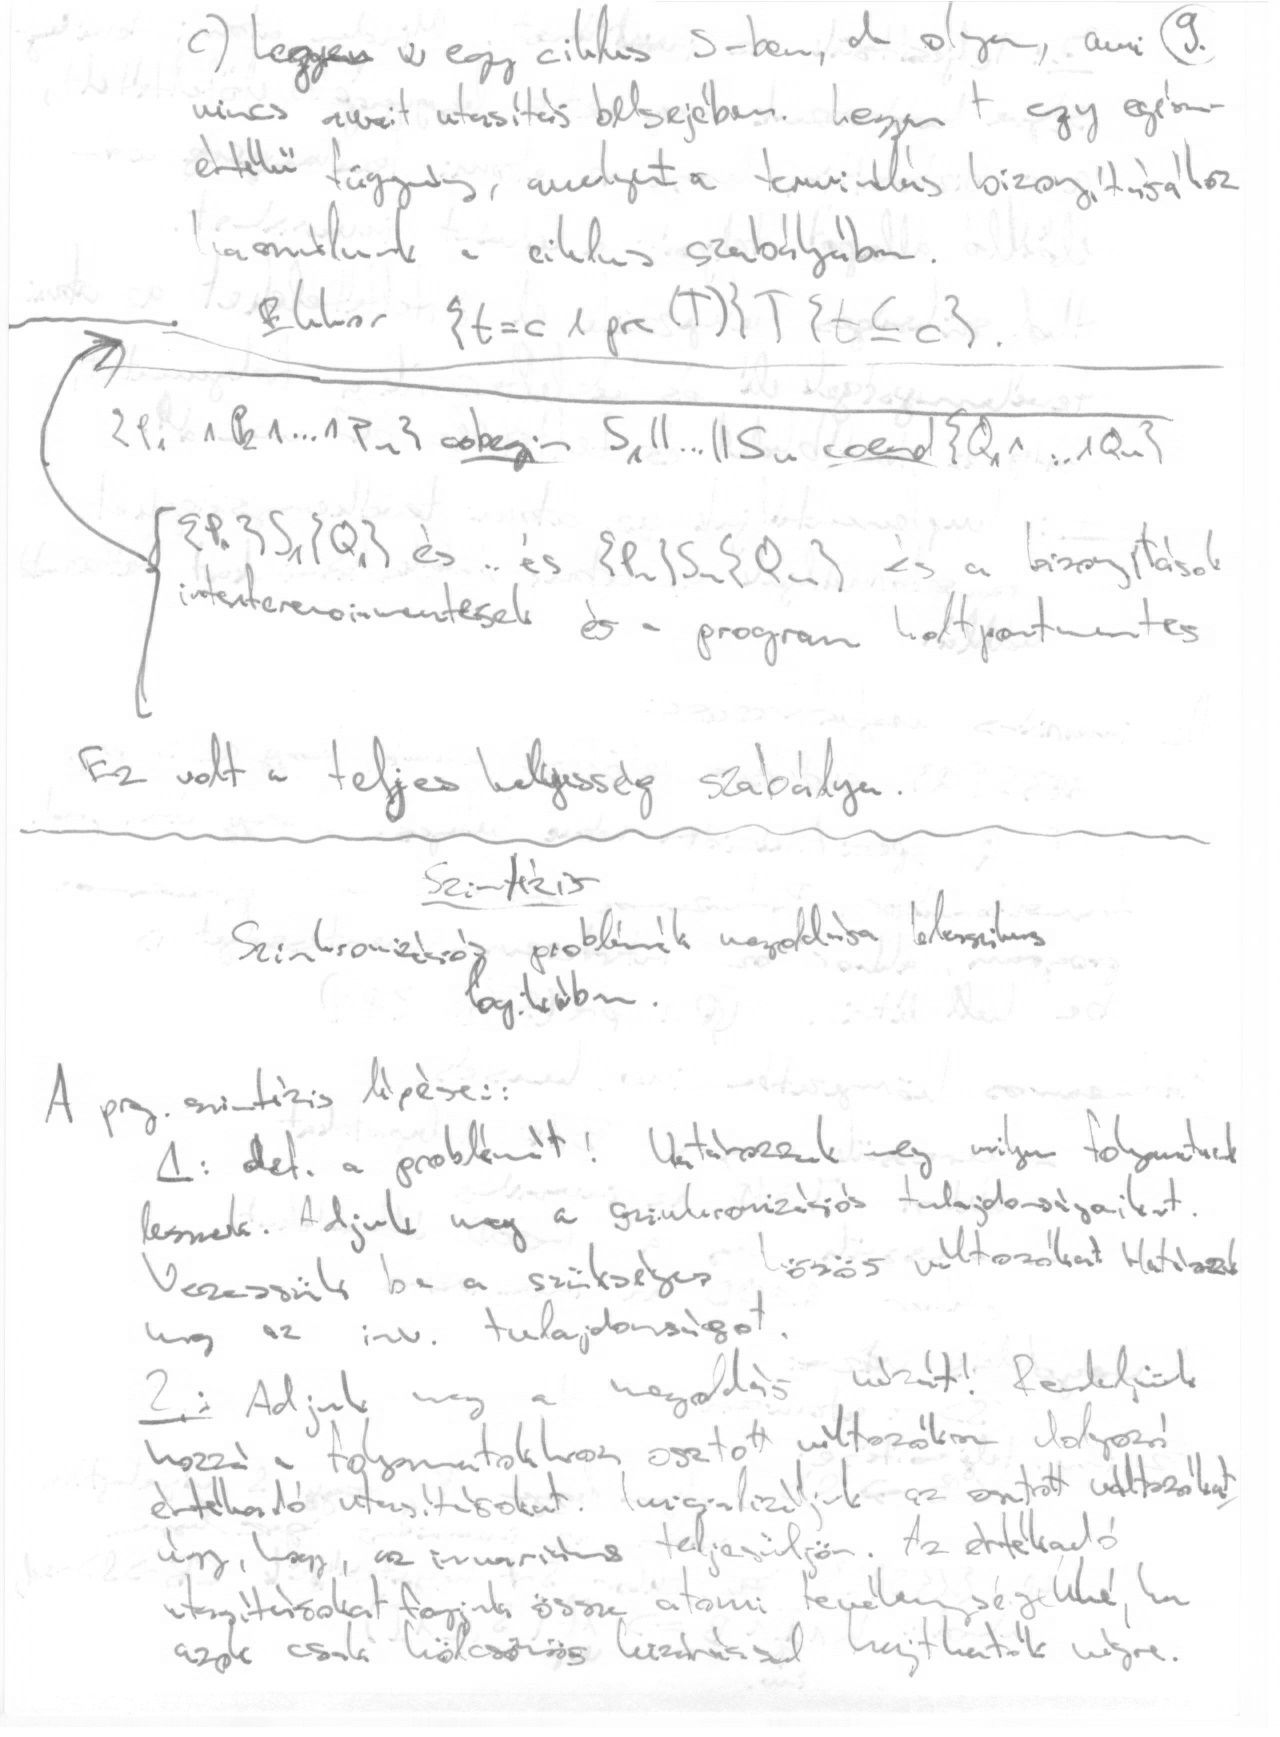 c) Legyen w egy ciklus S-ben, de olyan, ami 9.
nincs await utasítás belsejében. Legyen t egy egész-
értékű függvény, amelyet a terminálás bizonyításához
használunk a ciklus szabályában.
Ekkor {t=c ∧ pre(T)} T {t ≤ c}.
{P₁ ∧ P₂ ∧ ... ∧ Pₙ} cobegin S₁||...||Sₙ coend {Q₁ ∧ ... ∧ Qₙ}
{P₁}S₁{Q₁} és .. és {Pₙ}Sₙ{Qₙ} és a bizonyítások
interferenciamentesek és a program holtpontmentes
Ez volt a teljes helyesség szabálya.
Szintézis
Szinkronizációs problémák megoldása klasszikus
logikában.
A prg. szintézis lépései:
1.: def. a problémát! Határozzuk meg milyen folyamatok
lesznek. Adjuk meg a szinkronizációs tulajdonságaikat.
Vezessük be a szükséges közös változókat Határozzuk
meg az inv. tulajdonságot.
2.: Adjuk meg a megoldás vázát! Rendeljük
hozzá a folyamatokhoz osztott változókon dolgozó
értékadó utasításokat. Inicializáljuk az osztott változókat
úgy, hogy, az invariáns teljesüljön. Az értékadó
utasításokat fogjuk össze atomi tevékenységekké, ha
azok csak kölcsönös kizárással hajthatók végre.